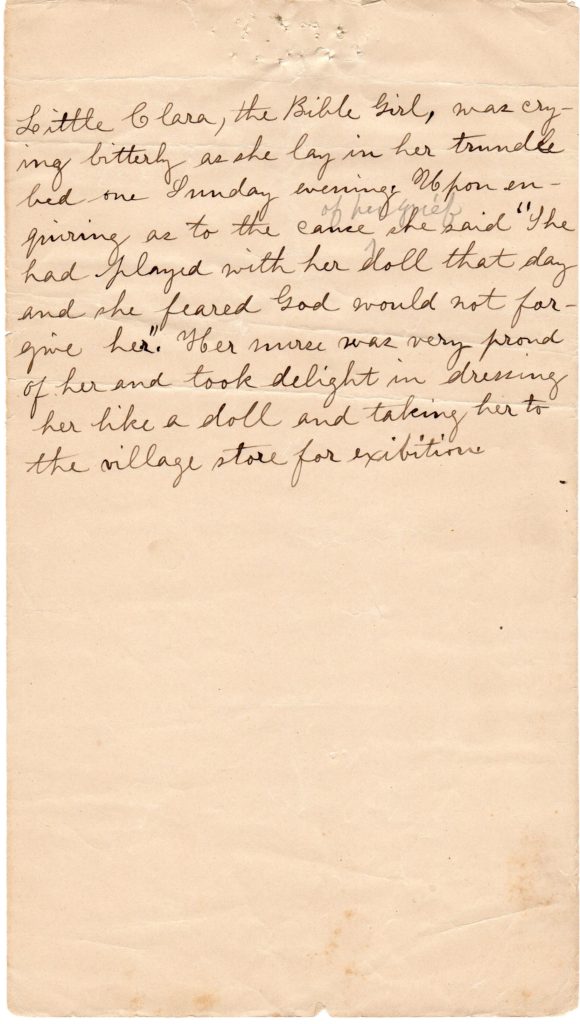 Little Clara, the Bible Girl, was cry-
ing bitterly as she lay in her trundle
bed one Sunday evening. Upon en-
of her grief
quiring as to the cause she said "She
had played with her doll that day
and she feared God would not for-
give her". Her nurse was very proud
of her and took delight in dressing
her like a doll and taking her to
the village store for exibition.